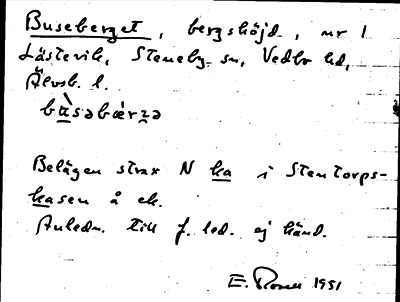 Buseberget, bergshöjd, nr 1
Lästevik, Steneby sn, Vedbo hd,
Älvsb. l.
bùsəbærʒə
Belägen strax N ka i Stentorps-
kasen å ek.
Anledn. till f. led. ej känd.
E. Rosell 1951